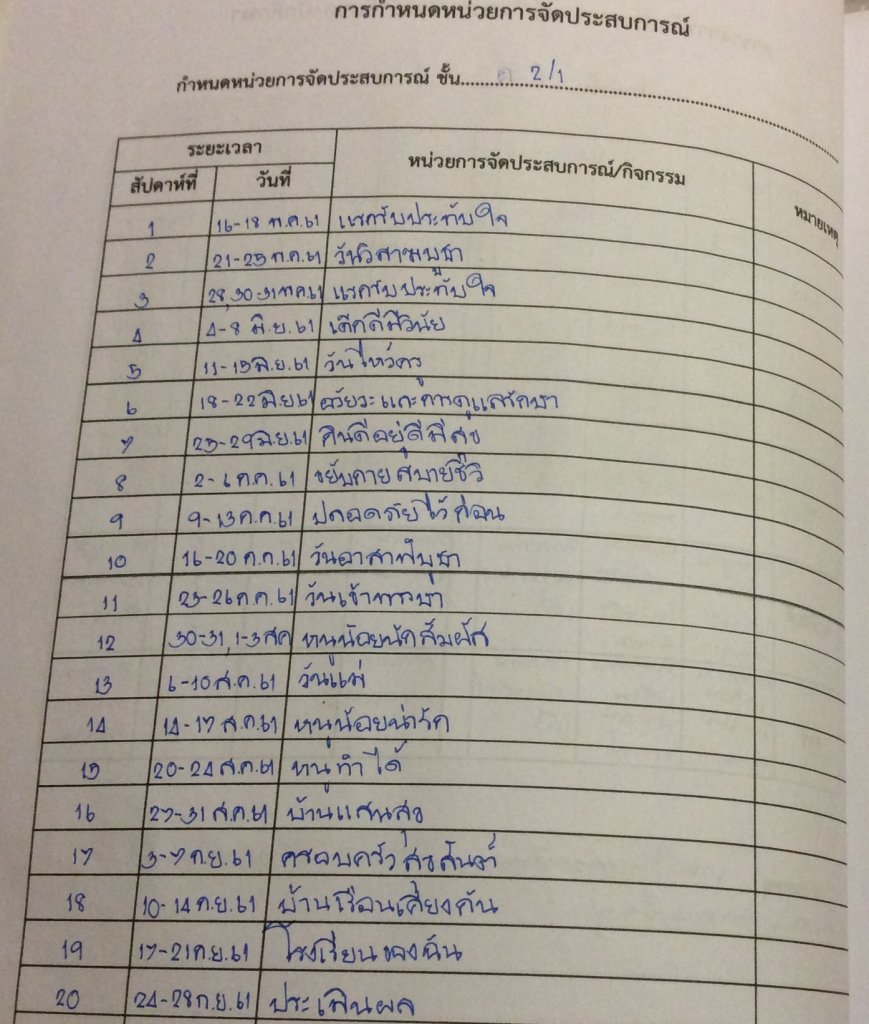 การกำหนดหน่วยการจัดประสบการณ์
กำหนดหน่วยการจัดประสบการณ์ ชั้น.....อ 2/1.....
ระยะเวลา หน่วยการจัดประสบการณ์/กิจกรรม หมายเหตุ
สัปดาห์ที่ วันที่
1 16-18 พ.ค.61 แรกรับประทับใจ
2 21-25 พ.ค.61 วันวิสาขบูชา
3 28,30-31 พ.ค.61 แรกรับประทับใจ
4 4-8 มิ.ย.61 เด็กดีมีวินัย
5 11-15 มิ.ย.61 วันไหว้ครู
6 18-22 มิ.ย 61 อวัยวะและการดูแลรักษา
7 25-29 มิ.ย.61 กินดีอยู่ดีมีสุข
8 2-6 ก.ค.61 ขยับกายสบายชีวี
9 9-13 ก.ค.61 ปลอดภัยไว้ก่อน
10 16-20 ก.ค.61 วันอาสาฬบูชา
11 23-26 ก.ค.61 วันเข้าพรรษา
12 30-31,1-3 สค หนูน้อยนักสัมผัส
13 6-10 ส.ค.61 วันแม่
14 14-17 ส.ค.61 หนูน้อยน่ารัก
15 20-24 ส.ค.61 หนูทำได้
16 27-31 ส.ค.61 บ้านแสนสุข
17 3-7 ก.ย.61 ครอบครัวสุขสันต์
18 10-14 ก.ย.61 บ้านเรือนเคียงกัน
19 17-21 ก.ย.61 โรงเรียนของฉัน
20 24-28 ก.ย.61 ประเมินผล